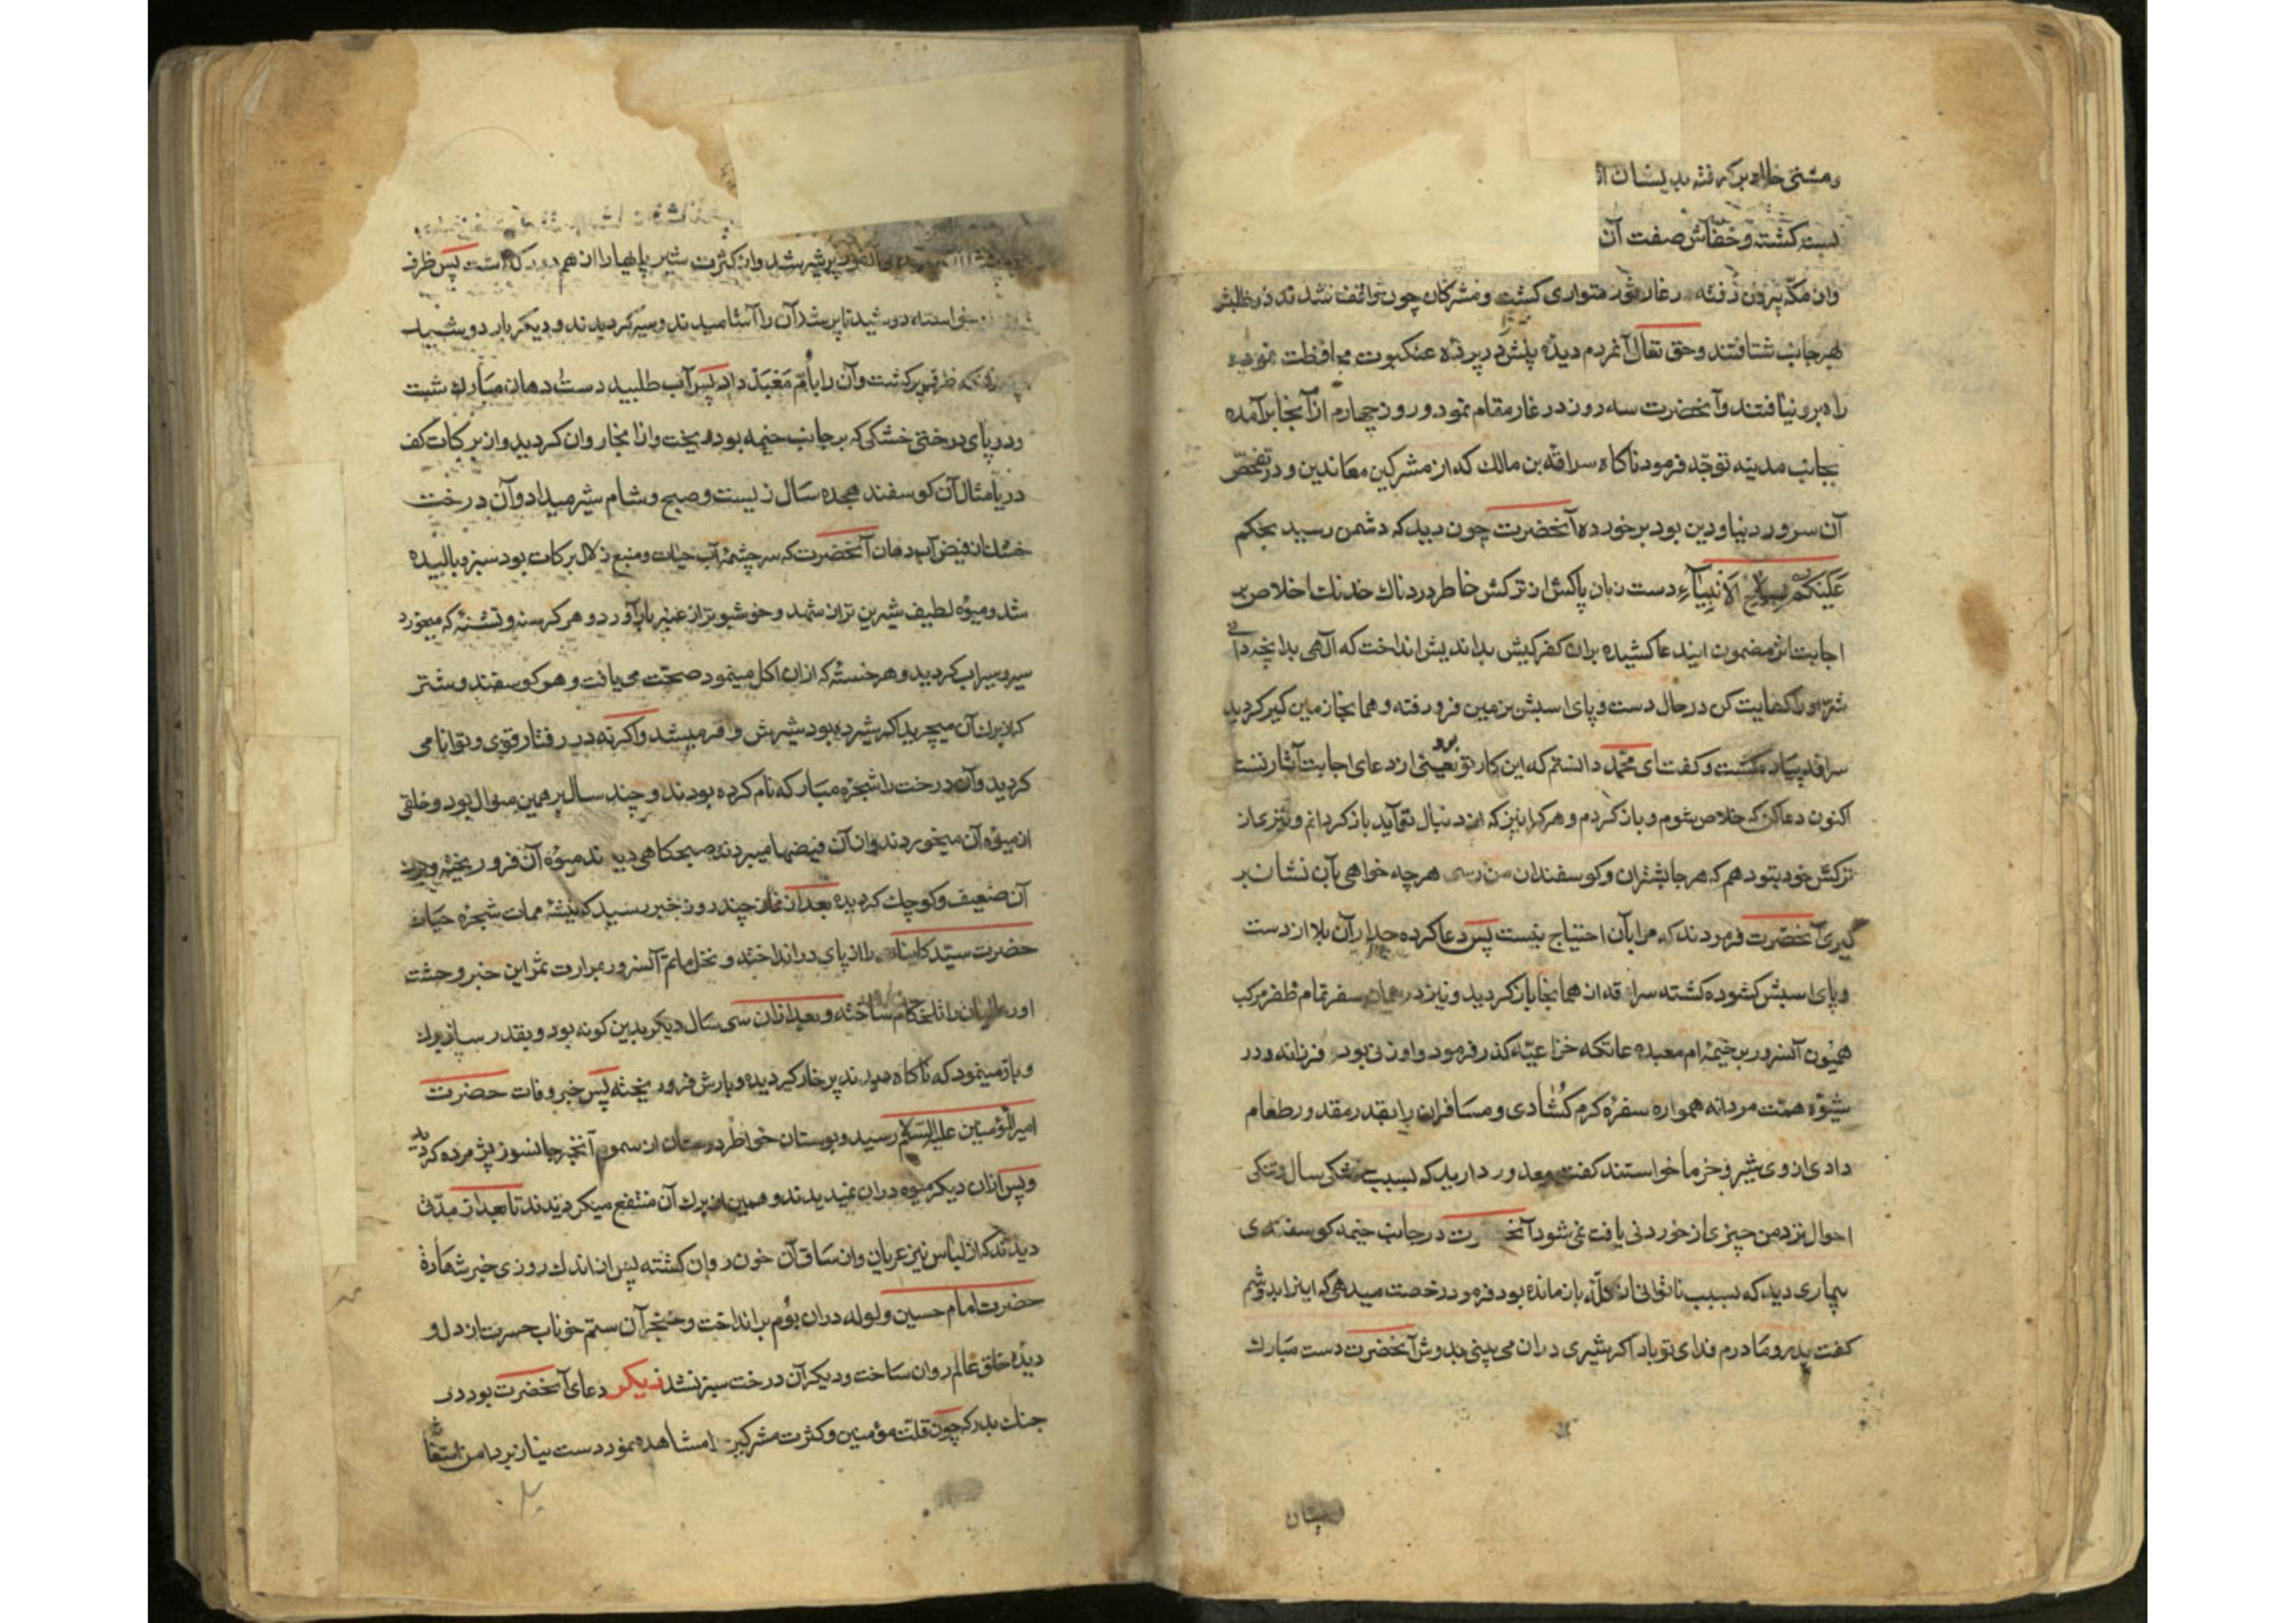 ومشتی خاک برگرفته بدیشان
بسته گشته وخفاش صفت آن
واز مکه بیرون رفته درغار ثور متواری گشت ومشرکان چون واقف شدند در طلبش
بهرجانب شتافتند وحق تعالی آنمردم دیدهٔ بینش در پردهٔ عنکبوت محافظت نموده
راه برو نیافتند وآنحضرت سه روز در غار مقام نمود و روز چهارم از آنجا برآمده
بجانب مدینه توجّه فرمود ناکاه سراقة بن مالک که از مشرکین معاندین و در تفحّص
آن سرور دنیا ودین بود برخورده آنحضرت چون دید که دشمن رسید بحکم
عَلَیْکُم بِسِلاحِ الاَنْبِیَآءِ دست زبان پاکش از ترکش خاطر دردناک خدنک اخلاص پر
اجابت اثر مضمون ایندعا کشیده بران کفرکیش بداندیش انداخت که الهی بدانچه دانی
شرّ اورا کفایت کن درحال دست وپای اسبش بزمین فرو رفته وهمانجا زمین گیر کردید
سراقه پیاده کشت و کفت ای محمّد دانستم که این کار تو بود یعنی از دعای اجابت آثار تست
اکنون دعا کن که خلاص شوم و باز کردم و هر کرا بینم که از دنبال تو آید باز کردانم و تیری از
ترکش خود بتو دهم که هرجا بشتران وکوسفندان من رسی هرچه خواهی بآن نشان بر
گیری آنحضرت فرمودند که مرا بآن احتیاج نیست پس دعا کرده آن بلا از دست
و پای اسبش کشوده کشته سراقه از همانجا باز کردید و نیز در همان سفر تمام ظفر مرکب
همیون آنسرور بر خیمهٔ ام معبد عاتکه خزاعیّه گذر فرمود و او زنی بود فرزانه و در
شیوهٔ همّت مردانه همواره سفرهٔ کرم کُشادی و مسافران را بقدر مقدور طعام
دادی از وی شیر و خرما خواستند کفت معذور دارید که بسبب خشکی سال و تنکی
احوال نزد من چیزی از خوردنی یافت نمی شود آنحضرت در جانب خیمه کوسفندی
بیماری دید که بسبب ناتوانی از کلّه باز مانده بود فرمود رخصت میدهی که اینرا بدوشم
کفت پدر ومادرم فدای تو باد اکر شیری دران می بینی بدوش آنحضرت دست مبارک
پستان
پرشیر شد واز کثرت شیر پایهارا از هم دور کذاشت پس ظرف
خواسته دوشید تا پر شد آن را آشامیدند و سیر کردیدند و دیکر بار دوشید
ظرف پر کشت وآن را باُمّ مَعْبَد داد پس آب طلبید دست و دهان مبارک شست
و در پای درختی خشکی که بر جانب خیمه بود بریخت و از آنجا روان کردید واز برکات کف
دریا مثال آن کوسفند هجده سال زیست وصبح وشام شیر میداد وآن درخت
خشک از فیض آب دهان آنحضرت که سرچشمهٔ آب حیات و منبع زلال برکات بود سبز و بالیده
شد و میوهٔ لطیف شیرین تر از شهد و خوشبوتر از عنبر بار آورد و هر کرسنه و تشنهٔ که میخورد
سیر و سیراب کردید و هر خستهٔ که ازان اکل مینمود صحّت می یافت و هر کوسفند و شتر
که از برک آن میچرید اکر شیرده بود شیرش وافر میشد و اکرنه در رفتار قوی وتوانا می
کردید و آن درخت را شجرهٔ مبارکه نام کرده بودند و چند سال بر همین منوال بود و خلقی
از میوهٔ آن میخوردند و از آن فیضها میبردند صبحکاهی دیدند میوهٔ آن فرو ریخته و برک
آن ضعیف و کوچک کردیده بعد از چند روز خبر رسید که تیشهٔ ممات شجرهٔ حیات
حضرت سیّد کاینات را از پای درانداخته و نخل ماتم آنسرور بمرارت ثمر این خبر وحشت
اور را تلخکام ساخته و بعد ازان سی سال دیکر بدین کونه بود و بقدر ساز و برک
و بار مینمود که ناکاه دیدند پر خار کردیده و بارش فرو ریخته پس خبر وفات حضرت
امیرالمؤمنین علیه السّلام رسید و بوستان خواطر دوستان از سموم آنخبر جانسوز پژمرده کردید
و پس ازان دیکر میوه دران ندیدند و همین از برک آن منتفع میکردیدند تا بعد از مدّتی
دیدند که از لباس نیز عریان واز ساق آن خون روان کشته پس از اندک روزی خبر شهادة
حضرت امام حسین ولوله دران بوم برانداخت و خنجر آن ستم خوناب حسرت از دل و
دیدهٔ خلق عالم روان ساخت و دیکر آن درخت سبز نشد دیکر دعای آنحضرت بود در
جنک بدر که چون قلّت مؤمنین و کثرت مشرکین را مشاهده نمود دست نیاز بر دامن